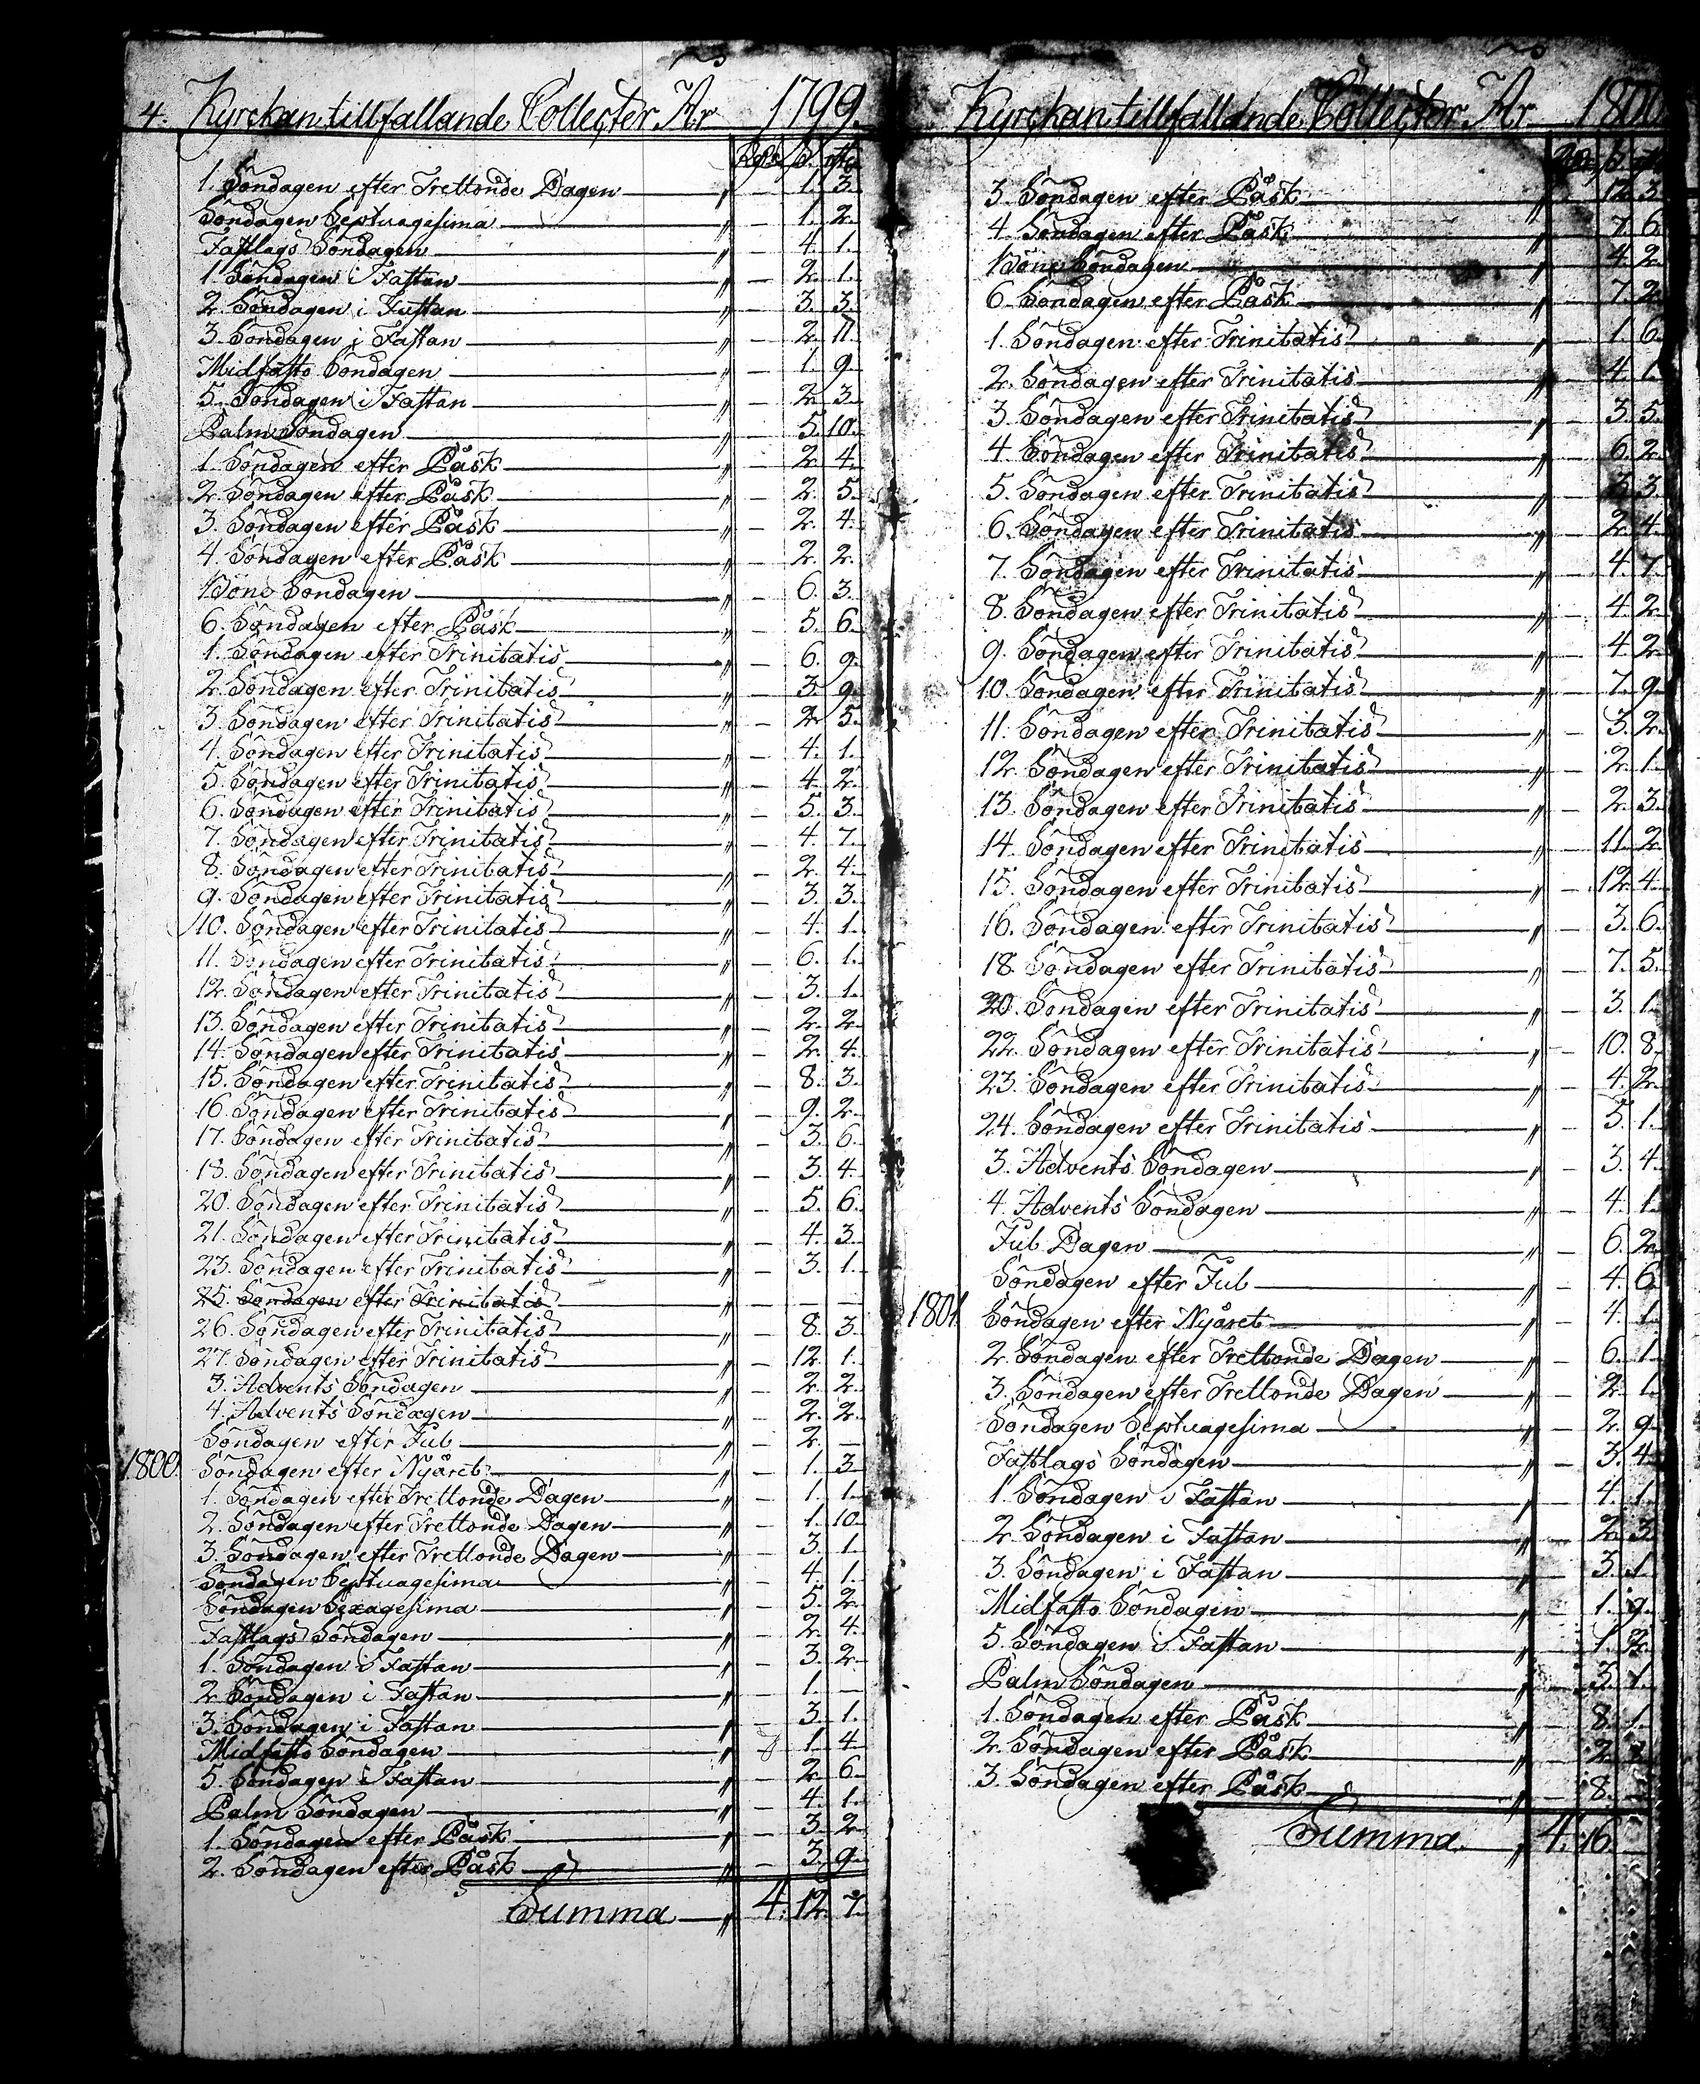 4. Kyrckan tillfallande Collecter År 1799.
Rdr. s. rst.
1. Söndagen efter Trettonde Dagen — " — 1. 3.
Söndagen Septuagesima — " — 1. 2.
Fastlags Söndagen — " — 4. 1.
1. Söndagen i Fastan — " — 2. 1.
2. Söndagen i Fastan — " — 3. 3.
3. Söndagen i Fastan — " — 2. 11.
Midfasto Söndagen — " — 1. 9.
5. Söndagen i Fastan — " — 2. 3.
Palm Söndagen — " — 5. 10.
1. Söndagen efter Påsk — " — 2. 4.
2. Söndagen efter Påsk — " — 2. 5.
3. Söndagen efter Påsk — " — 2. 4.
4. Söndagen efter Påsk — " — 2. 2.
Böne Söndagen — " — 6. 3.
6. Söndagen efter Påsk — " — 5. 6.
1. Söndagen efter Trinitatis — " — 6. 9.
2. Söndagen efter Trinitatis — " — 3. 9.
3. Söndagen efter Trinitatis — " — 2. 5.
4. Söndagen efter Trinitatis — " — 4. 1.
5. Söndagen efter Trinitatis — " — 4. 2.
6. Söndagen efter Trinitatis — " — 5. 3.
7. Söndagen efter Trinitatis — " — 4. 7.
8. Söndagen efter Trinitatis — " — 2. 4.
9. Söndagen efter Trinitatis — " — 3. 3.
10. Söndagen efter Trinitatis — " — 4. 1.
11. Söndagen efter Trinitatis — " — 6. 1.
12. Söndagen efter Trinitatis — " — 3. 1.
13. Söndagen efter Trinitatis — " — 2. 2.
14. Söndagen efter Trinitatis — " — 2. 4.
15. Söndagen efter Trinitatis — " — 8. 3.
16. Söndagen efter Trinitatis — " — 9. 2.
17. Söndagen efter Trinitatis — " — 3. 6.
18. Söndagen efter Trinitatis — " — 3. 4.
20. Söndagen efter Trinitatis — " — 5. 6.
21. Söndagen efter Trinitatis — " — 4. 3.
23. Söndagen efter Trinitatis — " — 3. 1.
25. Söndagen efter Trinitatis — " — — —
26. Söndagen efter Trinitatis — " — 8. 3.
27. Söndagen efter Trinitatis — " — 12. 1.
3. Advents Söndagen — " — 2. 2.
4. Advents Söndagen — " — 2. 2.
Söndagen efter Jul — " — 2. —
1800. Söndagen efter Nyåret — " — 1. 3.
1. Söndagen efter Trettonde Dagen — " — 1. 1.
2. Söndagen efter Trettonde Dagen — " — 1. 10.
3. Söndagen efter Trettonde Dagen — " — 3. 1.
Söndagen Septuagesima — " — 4. 1.
Söndagen Sexagesima — " — 5. 2.
Fastlags Söndagen — " — 2. 4.
1. Söndagen i Fastan — " — 3. 2.
2. Söndagen i Fastan — " — 1. —
3. Söndagen i Fastan — " — 3. 1.
Midfasto Söndagen — " 1. 4.
5. Söndagen i Fastan — " — 2. 6.
Palm Söndagen — " — 4. 1.
1. Söndagen efter Påsk — " — 3. 2.
2. Söndagen efter Påsk — " — 3. 9.
Summa — " 4. 12. 7.
Kyrckan tillfallande Collecter År 1800
3. Söndagen efter Påsk — " — 12. 3.
4. Söndagen efter Påsk — " — 7. 6.
Böne Söndagen — " — 4. 2.
6. Söndagen efter Påsk — " — 7. 2.
1. Söndagen efter Trinitatis — " — 1. 6.
2. Söndagen efter Trinitatis — " — 4. 1.
3. Söndagen efter Trinitatis — " — 3. 5.
4. Söndagen efter Trinitatis — " — 6. 2.
5. Söndagen efter Trinitatis — " — 3.
6. Söndagen efter Trinitatis — " — 2. 4.
7. Söndagen efter Trinitatis — " — 4. 7.
8. Söndagen efter Trinitatis — " — 4. 2.
9. Söndagen efter Trinitatis — " — 4. 2.
10. Söndagen efter Trinitatis — " — 7. 9.
11. Söndagen efter Trinitatis — " — 3. 2.
12. Söndagen efter Trinitatis — " — 2. 1.
13. Söndagen efter Trinitatis — " — 2. 3.
14. Söndagen efter Trinitatis — " — 11. 2.
15. Söndagen efter Trinitatis — " — 12. 4.
16. Söndagen efter Trinitatis — " — 3. 6.
18. Söndagen efter Trinitatis — " — 7. 5.
20. Söndagen efter Trinitatis — " — 3. 1.
22. Söndagen efter Trinitatis — " — 10. 8.
23. Söndagen efter Trinitatis — " — 4. 2.
24. Söndagen efter Trinitatis — " — 5. 1.
3. Advents Söndagen — " — 3. 4.
4. Advents Söndagen — " — 4. 1.
Jul Dagen — " — 6. 2.
Söndagen efter Jul — " — 4. 6.
1801. Söndagen efter Nyåret — " — 4. 1.
2. Söndagen efter Trettonde Dagen — " — 6. 1.
3. Söndagen efter Trettonde Dagen — " — 2. 1.
Söndagen Septuagesima — " — 2. 9.
Fastlags Söndagen — " — 3. 4.
1. Söndagen i Fastan — " — 4. 1.
2. Söndagen i Fastan — " — 2. 3.
3. Söndagen i Fastan — " — 3. 1.
Midfasto Söndagen — " — 1. 9.
5. Söndagen i Fastan — " — 1. 2.
Palm Söndagen — " — 3. 1.
1. Söndagen efter Påsk — " — 8. 1.
2. Söndagen efter Påsk — " — 2.
3. Söndagen efter Påsk — " — 8. —
Summa — " 4. 16. —